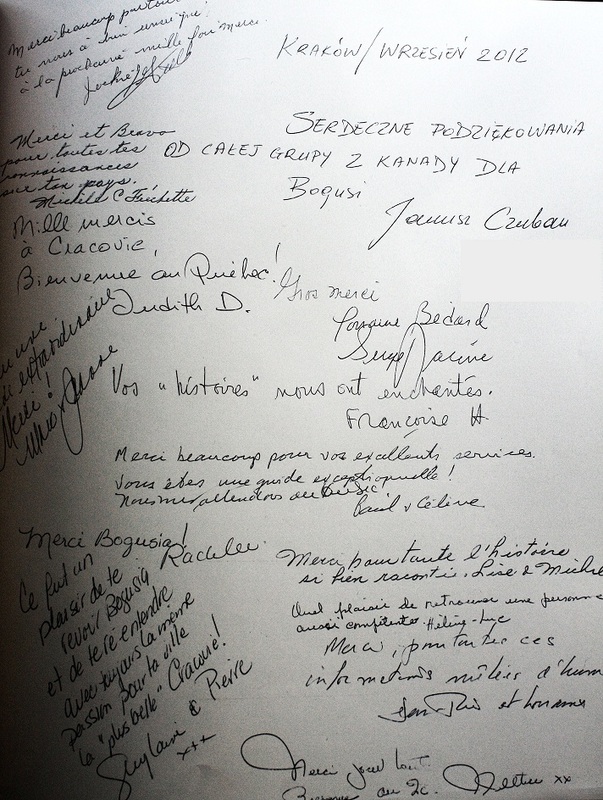 Merci beaucoup partout
tu nous à
à la prochaine mille fois merci.
KRAKÓW/WRZESIEŃ 2012
SERDECZNE PODZIĘKOWANIA
OD CAŁEJ GRUPY Z KANADY DLA
Bogusi
Janusz Czuban
Merci et Bravo
pour toutes tes
connaissances
sur ton pays.
Michèle C Fréchette
Mille mercis
à Cracovie,
Bienvenue au Québec!
Judith D.
Gros merci
Lorraine Bédard
Serge Racine
extraordinaire
Merci!
Vos "histoires" nous ont enchantés.
Françoise H
Merci beaucoup pour vos excellents services.
Vous êtes une guide exceptionnelle!
Nous vous attendons au Québec
Paul & Céline
Merci Bogusia!
Rachelle
Ce fut un
plaisir de te
revoir Bogusia
et de te réentendre
avec toujours la même
passion pour ta ville
la "plus belle" Cracovie!
Guylaine & Pierre
x++
Merci pour toute l'histoire
si bien racontée. Lise & Michel
Quel plaisir de retrouver une personne
aussi compétente. Hélène-Luc
Merci, pour toutes ces
informations mêlées d'hum
et
Merci pour tout.
au Qc.
xx